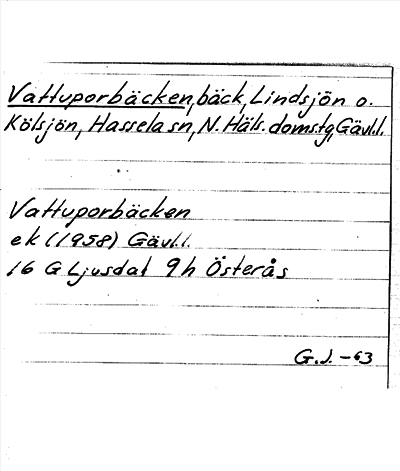 Vattuporbäcken, bäck, Lindsjön o.
Kölsjön, Hassela sn, N. Häls. domstg, Gävl.l.
Vattuporbäcken
ek (1958) Gävl.l.
16 G Ljusdal 9h Österås
G.J. -63